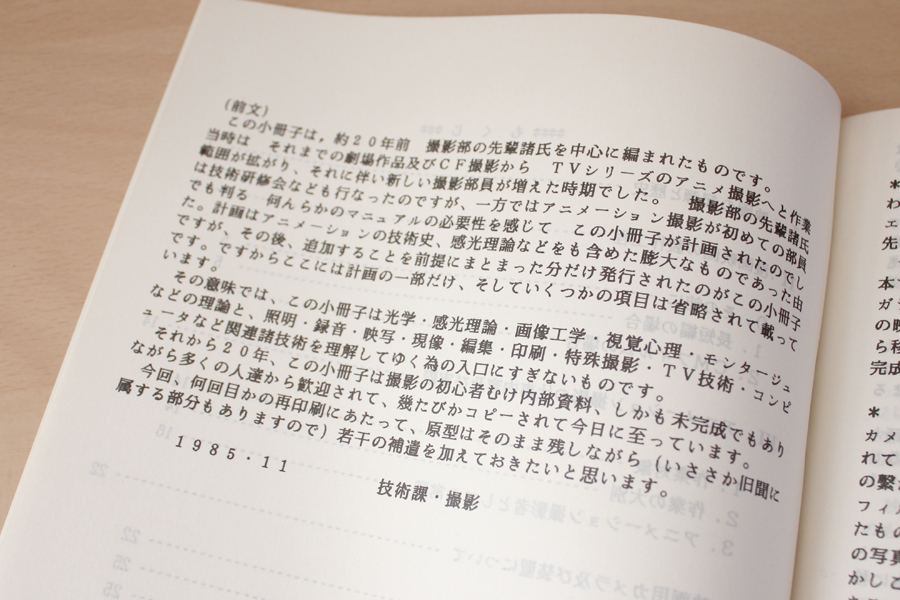 （前文）
　この小冊子は，約２０年前　撮影部の先輩諸氏を中心に編まれたものです。
当時は　それまでの劇場作品及びＣＦ撮影から　ＴＶシリーズのアニメ撮影へと作業
範囲が拡がり、それに伴い新しい撮影部員が増えた時期でした。　撮影部の先輩諸氏
は技術研修会なども行なったのですが、一方ではアニメーション撮影が初めての部員
でも判る　何んらかのマニュアルの必要性を感じて　この小冊子が計画されたのでし
た。計画はアニメーションの技術史、感光理論などをも含めた膨大なものであった由
ですが、その後、追加することを前提にまとまった分だけ発行されたのがこの小冊子
です。ですからここには計画の一部だけ、そしていくつかの項目は省略されて載って
います。
　その意味では、この小冊子は光学・感光理論・画像工学・視覚心理・モンタージュ
などの理論と、照明・録音・映写・現像・編集・印刷・特殊撮影・ＴＶ技術・コンピ
ュータなど関連諸技術を理解してゆく為の入口にすぎないものです。
　それから２０年、この小冊子は撮影の初心者むけ内部資料、しかも未完成でもあり
ながら多くの人達から歓迎されて、幾たびかコピーされて今日に至っています。
　今回、何回目かの再印刷にあたって、原型はそのまま残しながら（いささか旧聞に
属する部分もありますので）若干の補遺を加えておきたいと思います。
１９８５・１１
技術課・撮影
＊
わ
ェ
先
本
ガ
の
ら
完成
＊
カメ
れて
の繋
フィル
たもの
の写真
かしこ